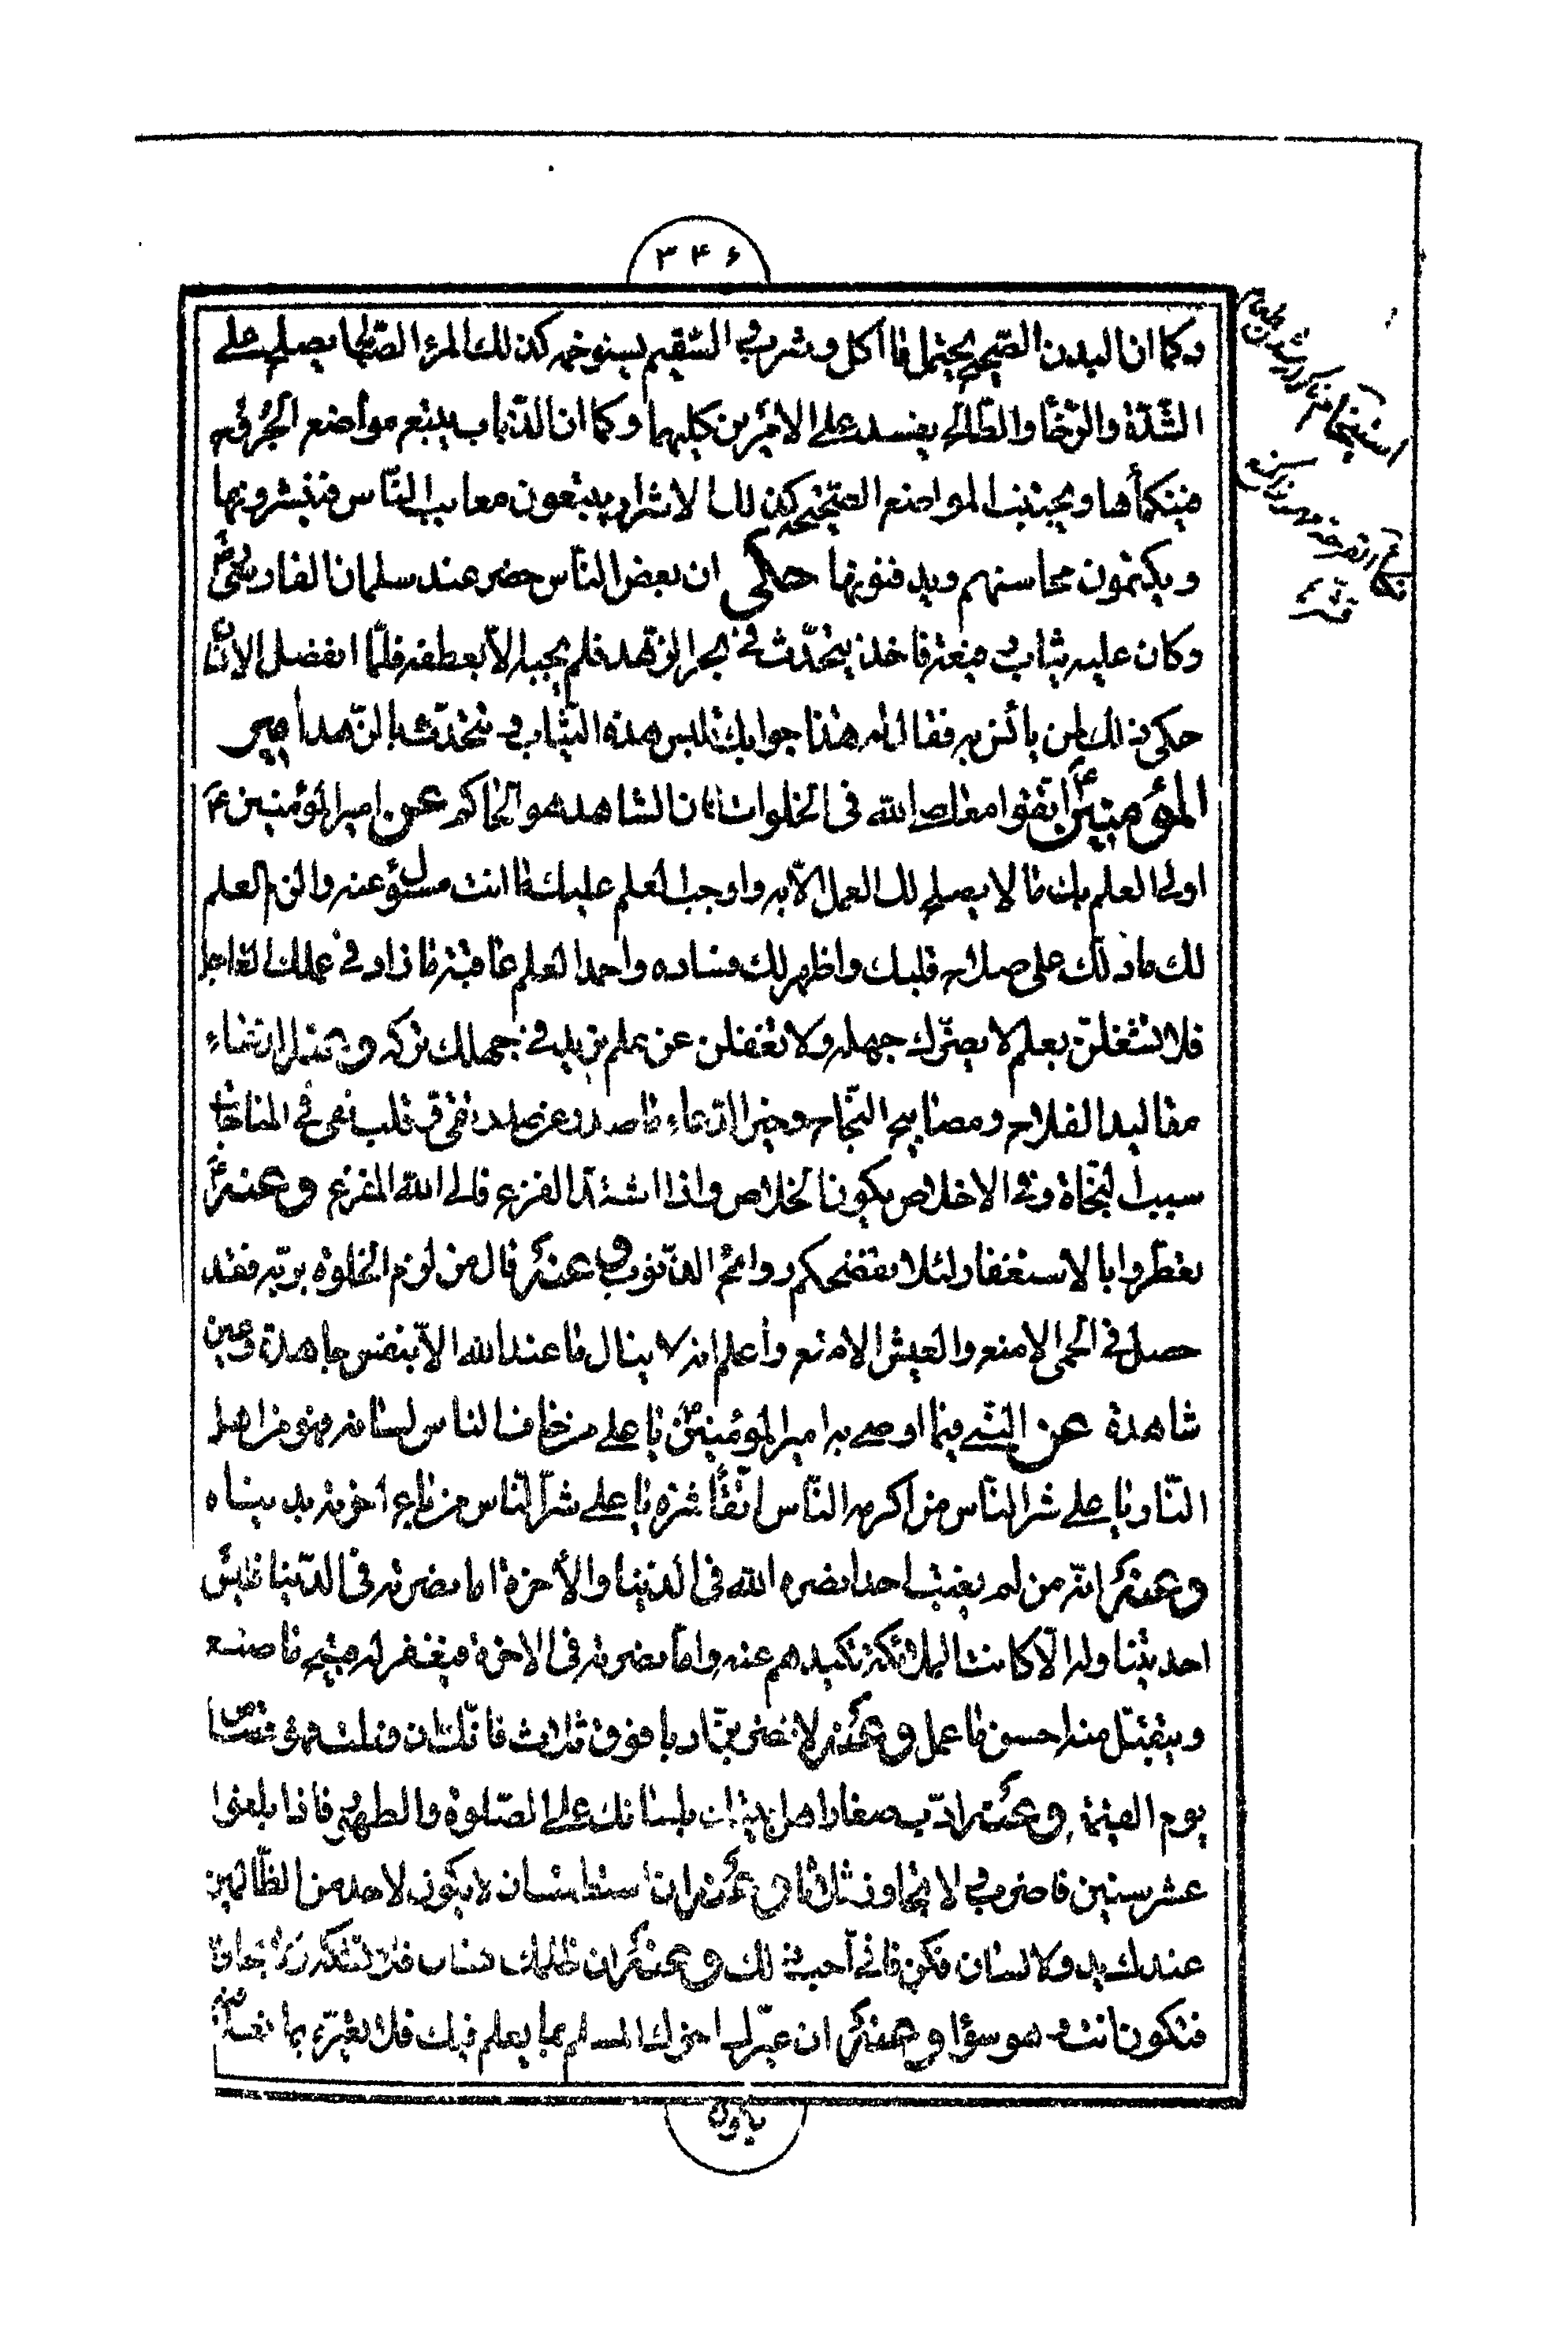 ۳۴۶
وكما ان البدن الصحيح يحتمل ما أكل وشرب و السقيم يستوخمه كذلك المرء الصالح يصلح على
الشدة والرخاء والطالح يفسد على الامرين كليهما وكما ان الذباب يتبع مواضع الجروح
فينكأها ويجتنب المواضع الصحيحة كذلك الاشرار يتبعون معايب الناس فينشرونها
ويكتمون محاسنهم ويدفنونها حكى ان بعض الناس حضر عند سلمان الفارسي
وكان عليه ثياب فاخذ يتحدث في الزهد فلم يجبه الا بعطفه فلما انفصل
حكى ذلك لمن يأنس به فقال له هذا جوابك تلبس هذه الثياب و تتحدث بالزهد امير
المؤمنين ع اتقوا معاصى الله فى الخلوات فان الشاهد هو الحاكم عن امير المؤمنين ع
اولى العلم بك ما لا يصلح لك العمل الا به واوجب العلم عليك ما انت مسئول عنه والزم العلم
لك ما دلك على صلاح قلبك واظهر لك فساده واحمد العلم عاقبة ما زاد فى عملك العاجل
فلا تشغلن بعلم لا يضرك جهله ولا تغفلن عن علم يزيد فى جهلك تركه وعنه الدعاء
مقاليد الفلاح ومصابيح النجاح وخير الدعاء ما صدر عن صدر نقى و قلب تقى وفى المناجاة
سبب النجاة وفى الاخلاص يكون الخلاص واذا اشتد الفزع فالى الله المفزع وعنه ع
تعطروا بالاستغفار لئلا تفضحكم روائح الذنوب وعنه ع قال من لزم الخلوة بربه فقد
حصل فى الحمى الامنع والعيش الامتع واعلم انه لا ينال ما عند الله الا بنفس جاهدة وعين
شاهدة عن النبى فيما اوصى به امير المؤمنين ع يا على من خاف الناس لسانه فهو من اهل
النار يا على شر الناس من اكرمه الناس اتقاء شره يا على شر الناس من باع اخرته بدنياه
وعنه ع انه من لم يغتب احدا نصره الله فى الدنيا والآخرة اما نصرته فى الدنيا فليس
احد يتناوله الا كانت الملائكة تكيدهم عنه واما نصرته فى الاخرة فيغفر له ما صنع
ويتقبل منه احسن ما عمل وعنه لا تضربن ادبا فوق ثلاث فانك ان فعلت فهو قصاص
يوم القيمة وعنه ادب صغار اهل بيتك بلسانك على الصلوة والطهور فاذا بلغوا
عشر سنين فاضرب و لا تجاوز ثلاثا وعنه ان استطعت ان لا يكون لاحد من الظالمين
عندك يد ولا لسان فكن فانى احب ذلك وعنه ع ان ظلمك
فتكون انت وهو سواء وعنه ع ان عيرك اخوك المسلم بما يعلم فيك فلا تعيره بما تعلم